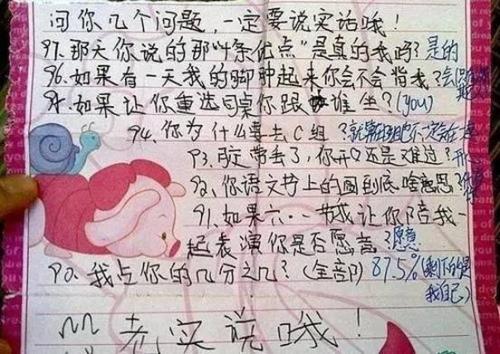 问你几个问题,一定要说实话哦!
97.那天你说的那"十条优点"是真的我吗?是的
96.如果有一天我的脚肿起来你会不会背我?会
95.如果让你重选同桌你跟谁坐?(you)
94.你为什么要去C组?就算
93.肚带丢了,你开心还是难过?
92.你语文书上的圆到底啥意思?
91.如果六·一节我让你陪我一
起表演你是否愿意?愿意
90.我占你的几分之几?(全部)87.5%(剩下的是
我自己)
老实说哦!